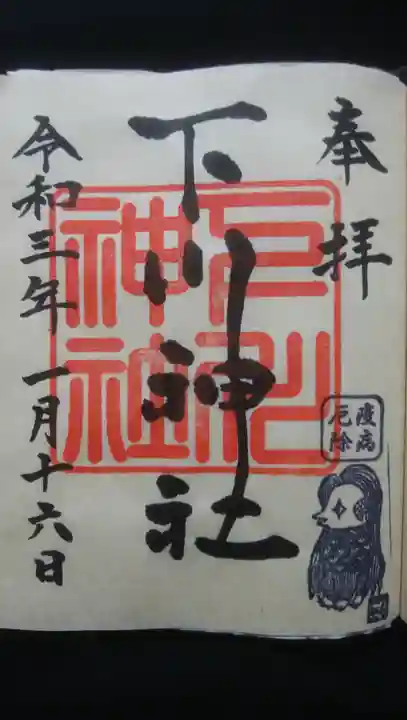 奉拝
疫病
厄除
下川神社
令和三年一月十六日
神社